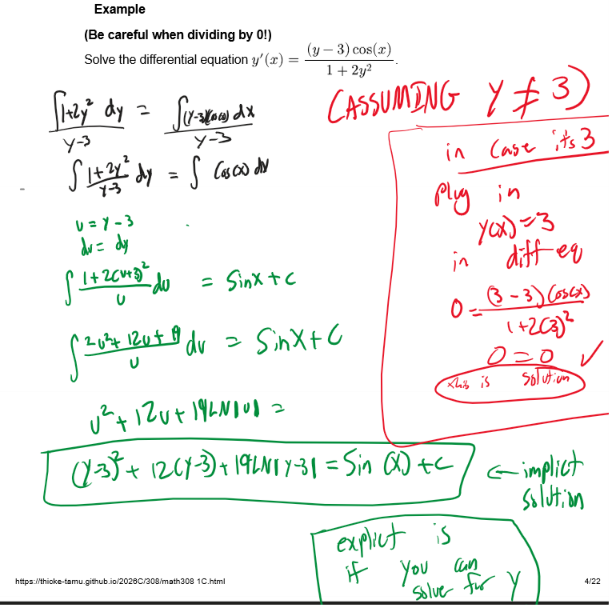 Example
(Be careful when dividing by 0!)
Solve the differential equation y′(x) = (y − 3) cos(x) / 1 + 2y².
∫1+2y² dy / y-3 = ∫(y-3)(cos(x)) dx / y-3
(ASSUMING Y ≠ 3)
∫ 1+2y² / y-3 dy = ∫ cos(x) dx
u = y - 3
du = dy
∫ 1+2(u+3)² / u du = sinx + c
∫ 2u² + 12u + 19 / u du = sinx + C
u² + 12u + 19LN|u| =
(y-3)² + 12(y-3) + 19LN|y-3| = Sin (x) + c
← implict
solution
explict is
if you can
solve for y
in case its 3
plug in
y(x) = 3
in diff eq
0 = (3-3)(cos(x) / 1+2(3)²
0 = 0 ✓
this is solution
https://thioke-tamu.github.io/2026C/308/math308 1C.html
4/22